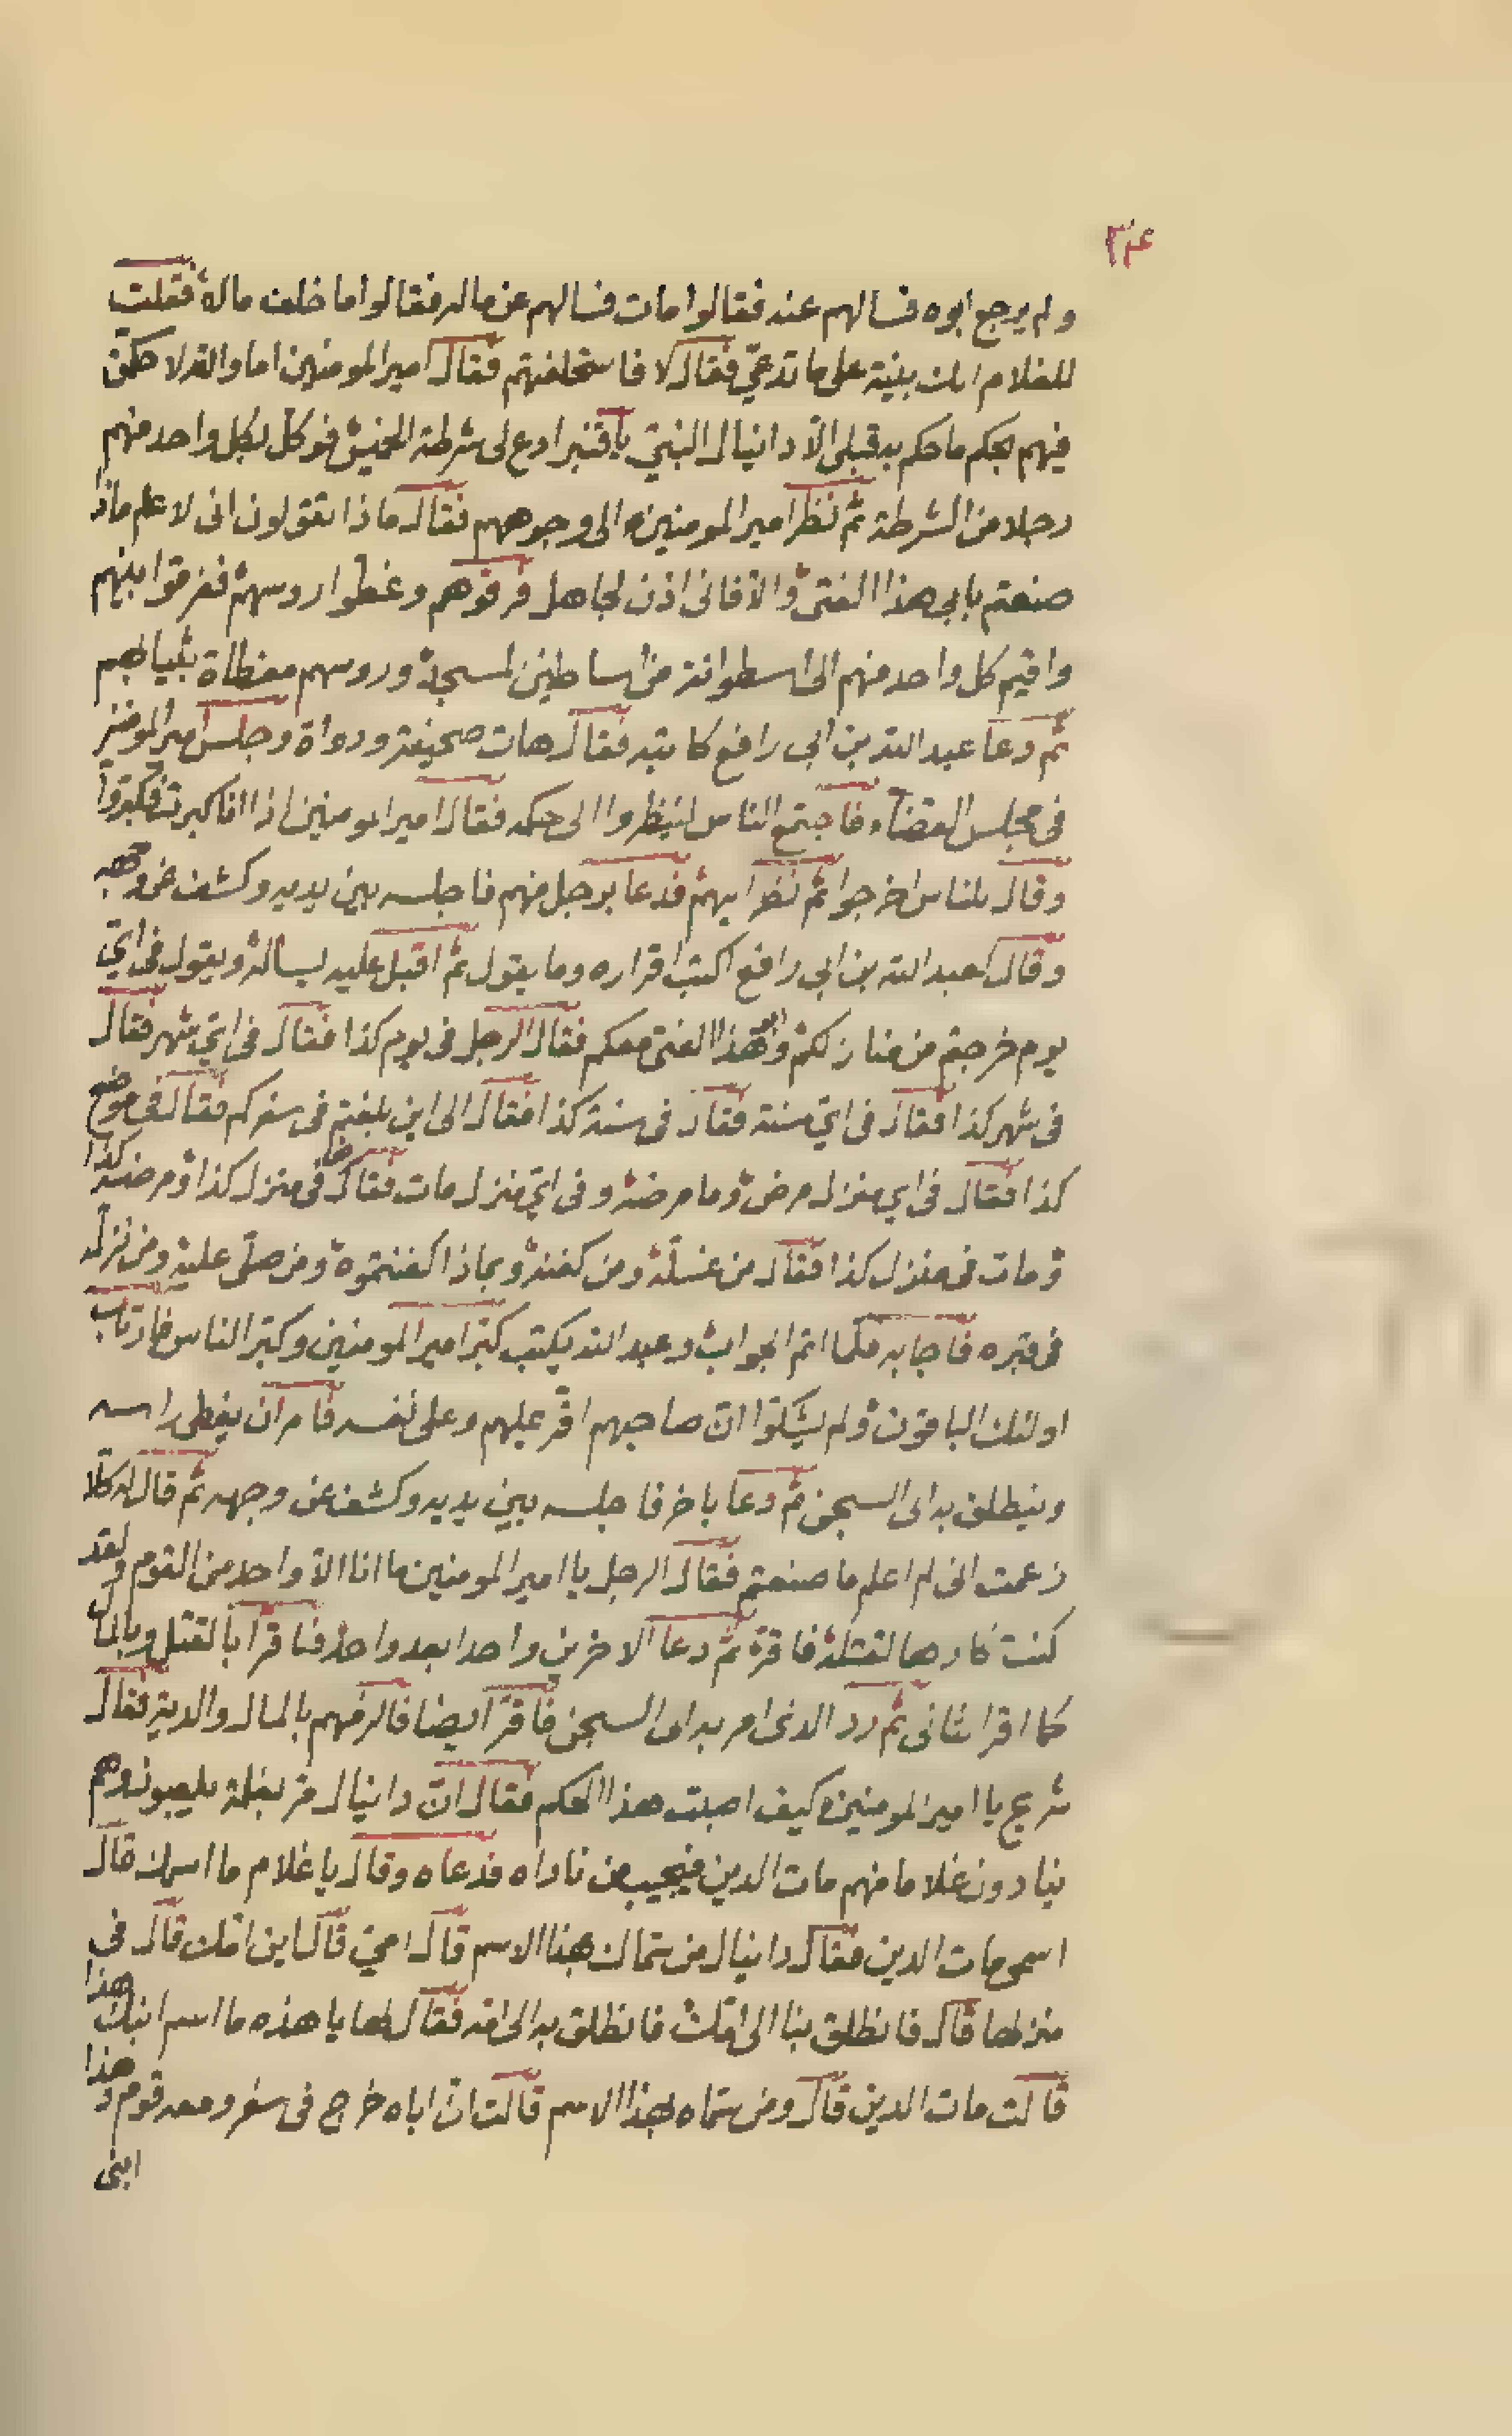 ولم يرجع ابوه فسالهم عنه فقالوا مات فسالهم عن ماله فقالوا ما خلف مالا فقلت
للغلام الك بينة على ما تدعي فقال لا فاستحلفتهم فقال امير المومنين اما والله لا حكمن
فيهم بحكم ما حكم به قبلي الا دانيال النبي يا قنبر ادع لي شرطة الخميس فوكل بكل واحد منهم
رجلا من الشرطة ثم نظر امير المومنين الى وجوههم فقال ماذا تقولون اني لا علم ماذا
صنعتم بابي هذا الفتى والا فاني اذن لجاهل فرقوهم وغطوا روسهم ففرقوا بينهم
واقيم كل واحد منهم الى اسطوانة من اساطين لمسجد وروسهم مغطاة بثيابهم
ثم دعا عبد الله بن ابي رافع كاتبه فقال هات صحيفة ودواة وجلس امير المومنين
في مجلس القضاء فاجتمع الناس لينظروا الى حكمه فقال امير المومنين اذا انا كبرت فكبروا
وقال للناس اخرجوا ثم نظر اليهم فدعا برجل منهم فاجلسه بين يديه وكشف عن وجهه
وقال لعبد الله بن ابي رافع اكتب اقراره وما يقول ثم اقبل عليه يساله ويقول في اي
يوم خرجتم من منازلكم وابو هذا الفتى معكم فقال الرجل في يوم كذا فقال في اي شهر فقال
في شهر كذا فقال في اي سنة فقال في سنة كذا فقال الى اين بلغتم في سفركم فقال في موضع كذا
كذا فقال في اي منزل مرض وما مرضه وفي اي منزل مات فقال في منزل كذا ومرضه
ومات في منزل كذا فقال من غسله ومن كفنه وبماذا كفنتموه ومن صلى عليه ومن نزل
في قبره فاجابه فلما اتم الجواب وعبد الله يكتب كبر امير المومنين وكبر الناس فارتاب
اولئك الباقون ولم يشكوا ان صاحبهم اقر عليهم وعلى نفسه فامر ان يغطى راسه
وينطلق به الى السجن ثم دعا باخر فاجلسه بين يديه وكشف عن وجهه ثم قال له كلا
زعمت اني لم اعلم ما صنعتم فقال الرجل يا امير المومنين ما انا الا واحد من القوم ولقد
كنت كارها لقتله فاقر ثم دعا الاخرين واحدا بعد واحد فاقر بالقتل وبالمال
كما اقر الثاني ثم رد الذي امر به الى السجن فاقر ايضا فالزمهم بالمال والدية فقال
شريح يا امير المومنين وكيف اصبت هذا الحكم فقال ان دانيال مر بغلمة يلعبون وهم
ينادون غلاما منهم مات الدين فيجيب من ناداه فدعاه وقال يا غلام ما اسمك قال
اسمي مات الدين فقال دانيال من سماك هذا الاسم قال امي قال اين امك قال في
منزلها قال فانطلق بنا الى امك فانطلق به الى امه فقال لها يا هذه ما اسم ابنك هذا
قالت مات الدين قال ومن سماه بهذا الاسم قالت ان اباه خرج في سفر ومعه قوم وهذا
ابني